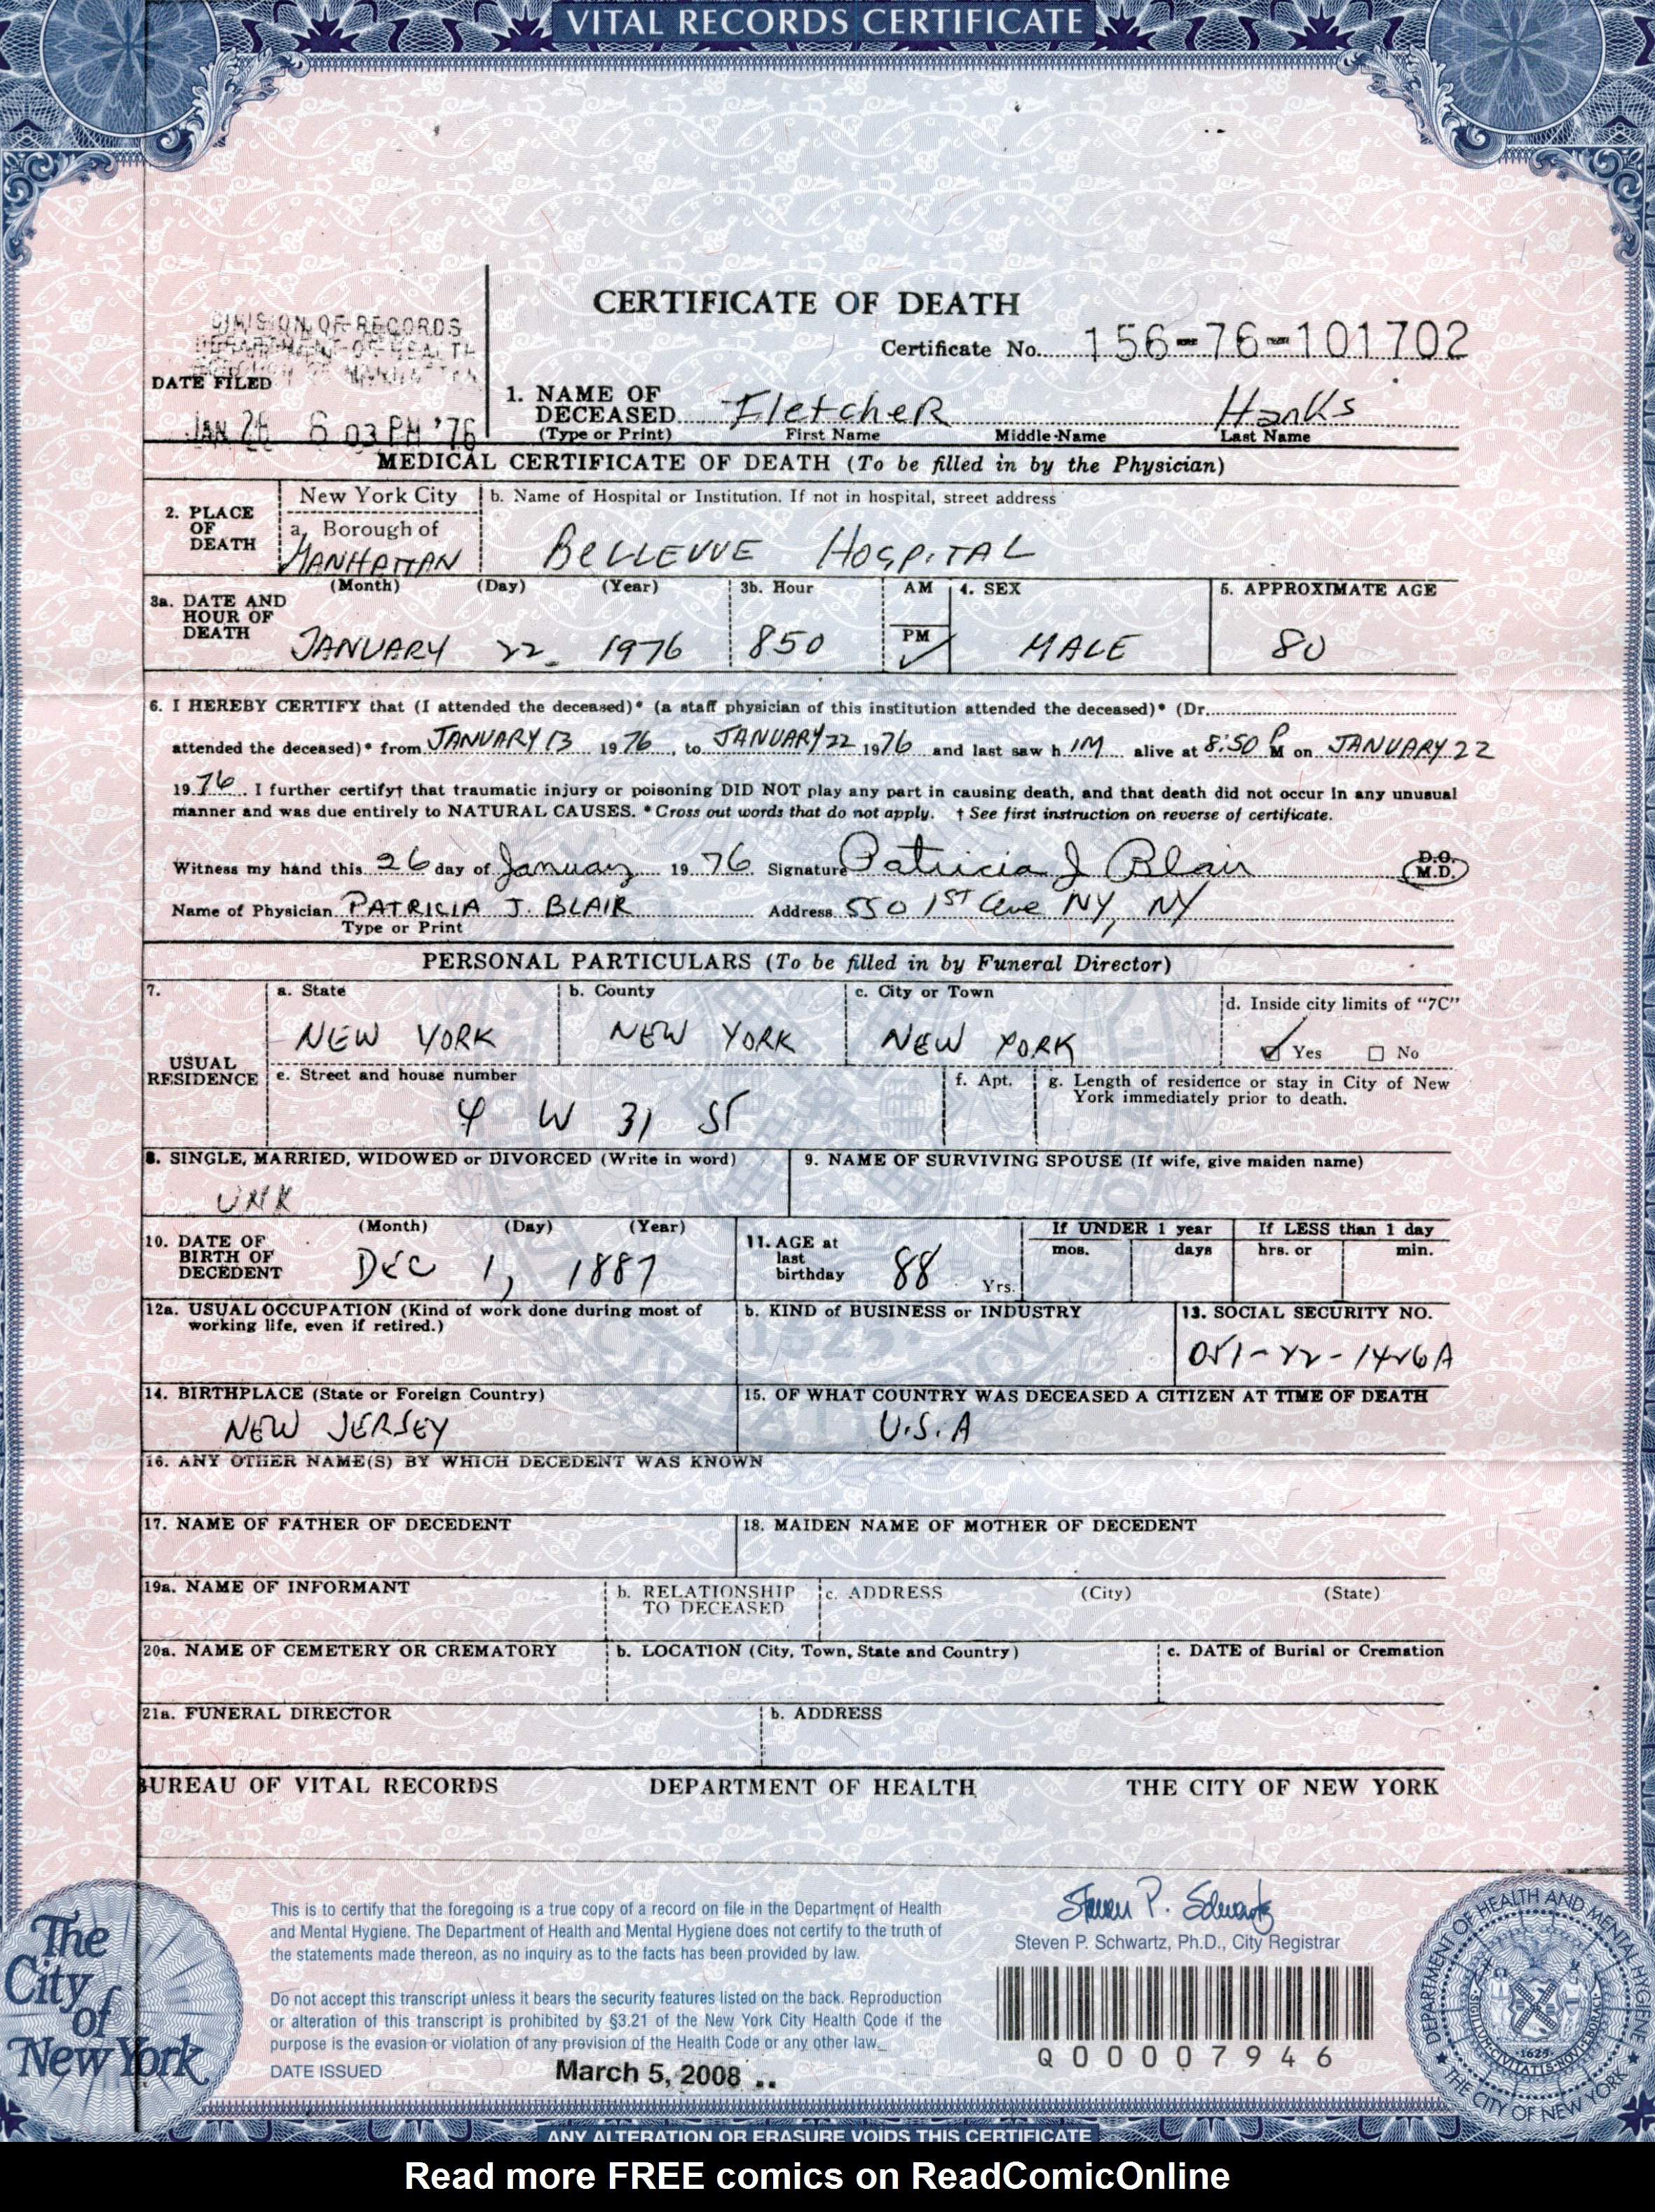 VITAL RECORDS CERTIFICATE
DIVISION OF RECORDS
DEPARTMENT OF HEALTH
DATE FILED
JAN 26 6 03 PM '76
CERTIFICATE OF DEATH
Certificate No. 156-76-101702
1. NAME OF DECEASED Fletcher Hanks
(Type or Print) First Name Middle Name Last Name
MEDICAL CERTIFICATE OF DEATH (To be filled in by the Physician)
2. PLACE OF DEATH
New York City
a. Borough of
MANHATTAN
b. Name of Hospital or Institution. If not in hospital, street address
BELLEVUE HOSPITAL
3a. DATE AND HOUR OF DEATH
(Month) (Day) (Year)
JANUARY 22 1976
3b. Hour
850
AM
PM ✓
4. SEX
MALE
5. APPROXIMATE AGE
80
6. I HEREBY CERTIFY that (I attended the deceased)* (a staff physician of this institution attended the deceased)* (Dr.
attended the deceased)* from JANUARY 13 1976, to JANUARY 22 1976 and last saw h IM alive at 8:50 P M on JANUARY 22
1976. I further certify† that traumatic injury or poisoning DID NOT play any part in causing death, and that death did not occur in any unusual
manner and was due entirely to NATURAL CAUSES. *Cross out words that do not apply. † See first instruction on reverse of certificate.
Witness my hand this 26 day of January 1976 Signature Patricia J Blair D.O. M.D.
Name of Physician PATRICIA J. BLAIR Address 550 1ST Ave NY, NY
Type or Print
PERSONAL PARTICULARS (To be filled in by Funeral Director)
7. USUAL RESIDENCE
a. State
NEW YORK
b. County
NEW YORK
c. City or Town
NEW YORK
d. Inside city limits of "7C"
Yes No
e. Street and house number
4 W 31 ST
f. Apt.
g. Length of residence or stay in City of New
York immediately prior to death.
8. SINGLE, MARRIED, WIDOWED or DIVORCED (Write in word)
UNK
9. NAME OF SURVIVING SPOUSE (If wife, give maiden name)
10. DATE OF BIRTH OF DECEDENT
(Month) (Day) (Year)
DEC 1, 1887
11. AGE at last birthday
88 Yrs.
If UNDER 1 year
mos. days
If LESS than 1 day
hrs. or min.
12a. USUAL OCCUPATION (Kind of work done during most of
working life, even if retired.)
b. KIND of BUSINESS or INDUSTRY
13. SOCIAL SECURITY NO.
051-22-1426A
14. BIRTHPLACE (State or Foreign Country)
NEW JERSEY
15. OF WHAT COUNTRY WAS DECEASED A CITIZEN AT TIME OF DEATH
U.S.A
16. ANY OTHER NAME(S) BY WHICH DECEDENT WAS KNOWN
17. NAME OF FATHER OF DECEDENT
18. MAIDEN NAME OF MOTHER OF DECEDENT
19a. NAME OF INFORMANT
b. RELATIONSHIP TO DECEASED
c. ADDRESS (City) (State)
20a. NAME OF CEMETERY OR CREMATORY
b. LOCATION (City, Town, State and Country)
c. DATE of Burial or Cremation
21a. FUNERAL DIRECTOR
b. ADDRESS
BUREAU OF VITAL RECORDS DEPARTMENT OF HEALTH THE CITY OF NEW YORK
The City of New York
This is to certify that the foregoing is a true copy of a record on file in the Department of Health
and Mental Hygiene. The Department of Health and Mental Hygiene does not certify to the truth of
the statements made thereon, as no inquiry as to the facts has been provided by law.
Do not accept this transcript unless it bears the security features listed on the back. Reproduction
or alteration of this transcript is prohibited by §3.21 of the New York City Health Code if the
purpose is the evasion or violation of any provision of the Health Code or any other law.
DATE ISSUED March 5, 2008
Steven P. Schwartz
Steven P. Schwartz, Ph.D., City Registrar
Q00007946
DEPARTMENT OF HEALTH AND MENTAL HYGIENE
THE CITY OF NEW YORK
SIGILLVM CIVITATIS NOVI EBORACI
1625
ANY ALTERATION OR ERASURE VOIDS THIS CERTIFICATE
Read more FREE comics on ReadComicOnline